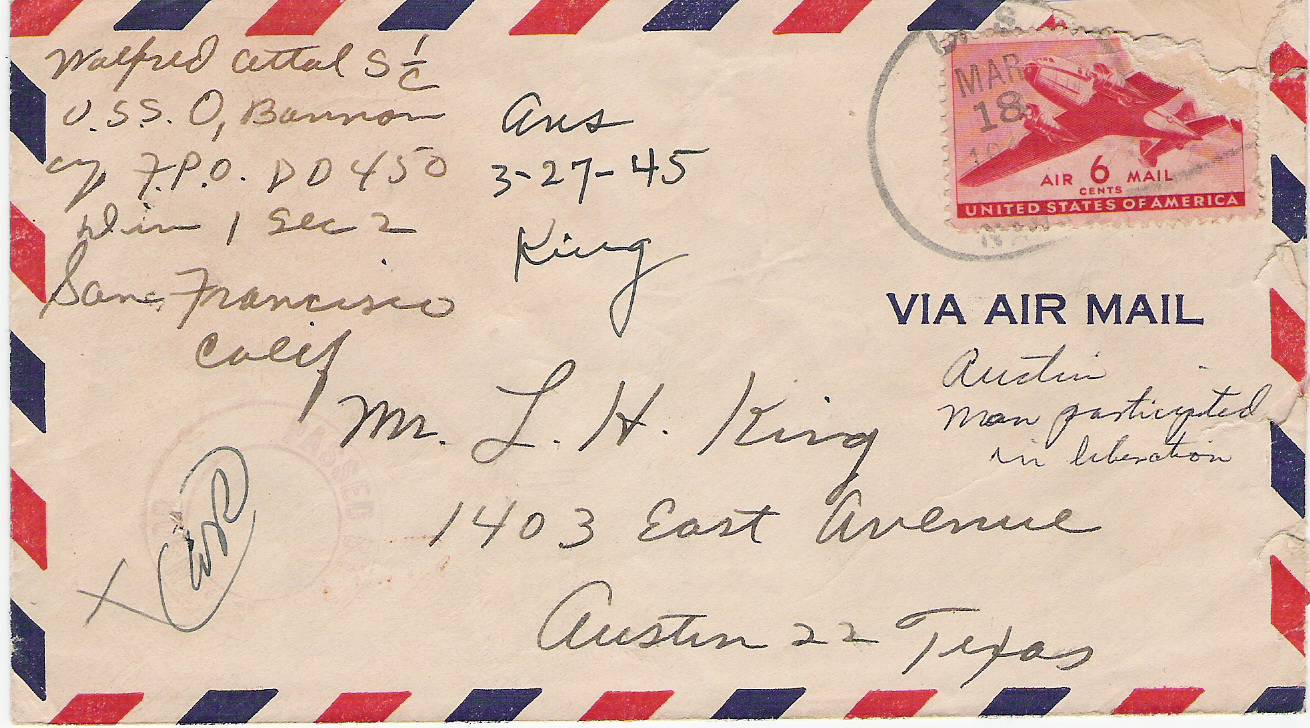 Walfred Attal S 1/c
U.S.S. O, Bannon
c/o F.P.O. DD 450
Div 1 Sec 2
San Francisco
Calif
Ans
3-27-45
King
U.S.
MAR
18
AIR 6 MAIL
CENTS
UNITED STATES OF AMERICA
VIA AIR MAIL
Austin
Man particpted
in liberation
Mr. L. H. King
1403 East Avenue
Austin 22 Texas
PASSED
X